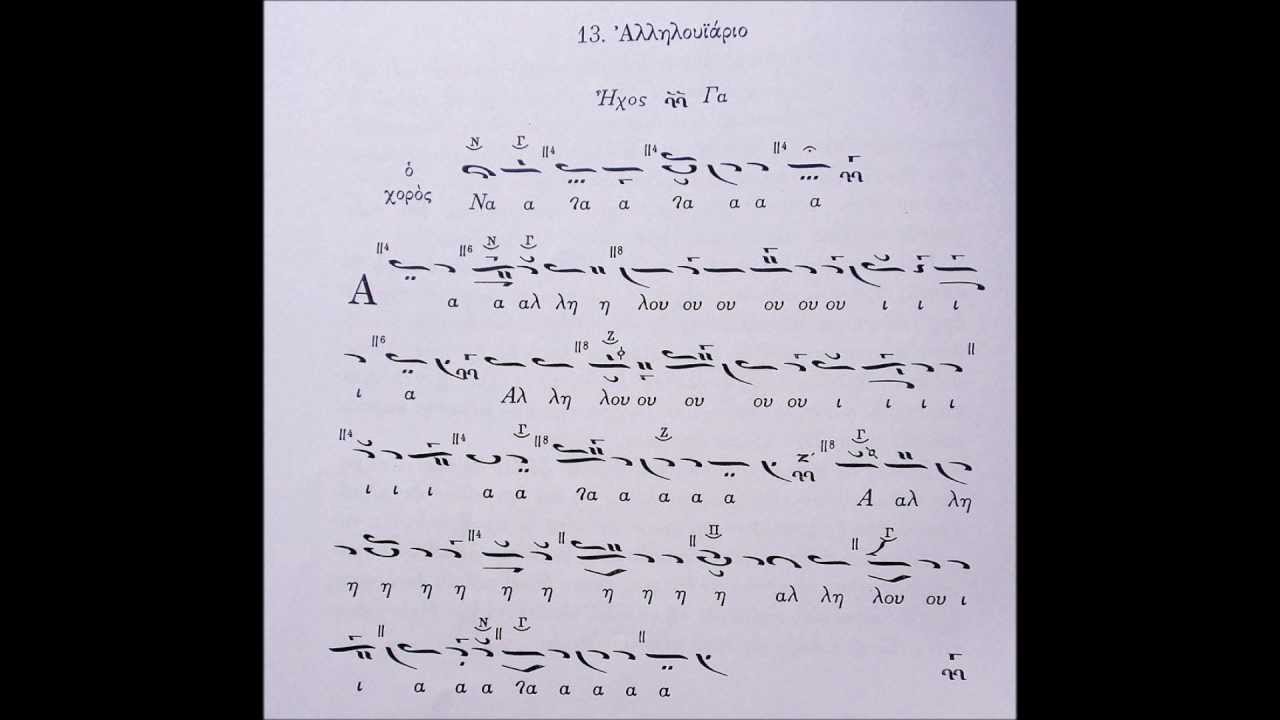 13. Ἀλληλουϊάριο
Ἦχος Γα
ὁ χορὸς
Να α ʔα α ʔα α α α
Α α α αλ λη η λου ου ου ου ου ου ι ι ι
ι α Αλ λη λου ου ου ου ου ι ι ι ι
ι ι ι α α ʔα α α α α Α αλ λη
η η η η η η η η η η αλ λη λου ου ι
ι α α α ʔα α α α α